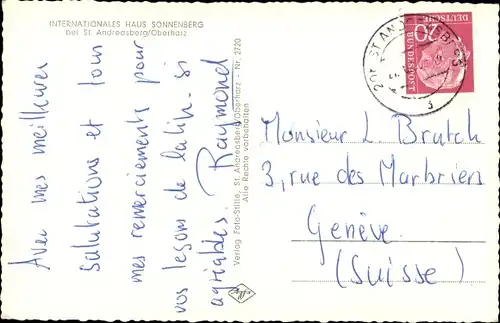 INTERNATIONALES HAUS SONNENBERG
bei St. Andreasberg/Oberharz
Avec mes meilleures
salutations et tous
mes remerciements pour
vos leçons de latin si
agréables. Raymond
Verlag Foto-Stille, St. Andreasberg/Oberharz - Nr. 2720
Alle Rechte vorbehalten
DEUTSCHE
BUNDESPOST
20
ST ANDREASBERG
Monsieur L Brutch
3, rue des Marbriers
Genève
(Suisse)